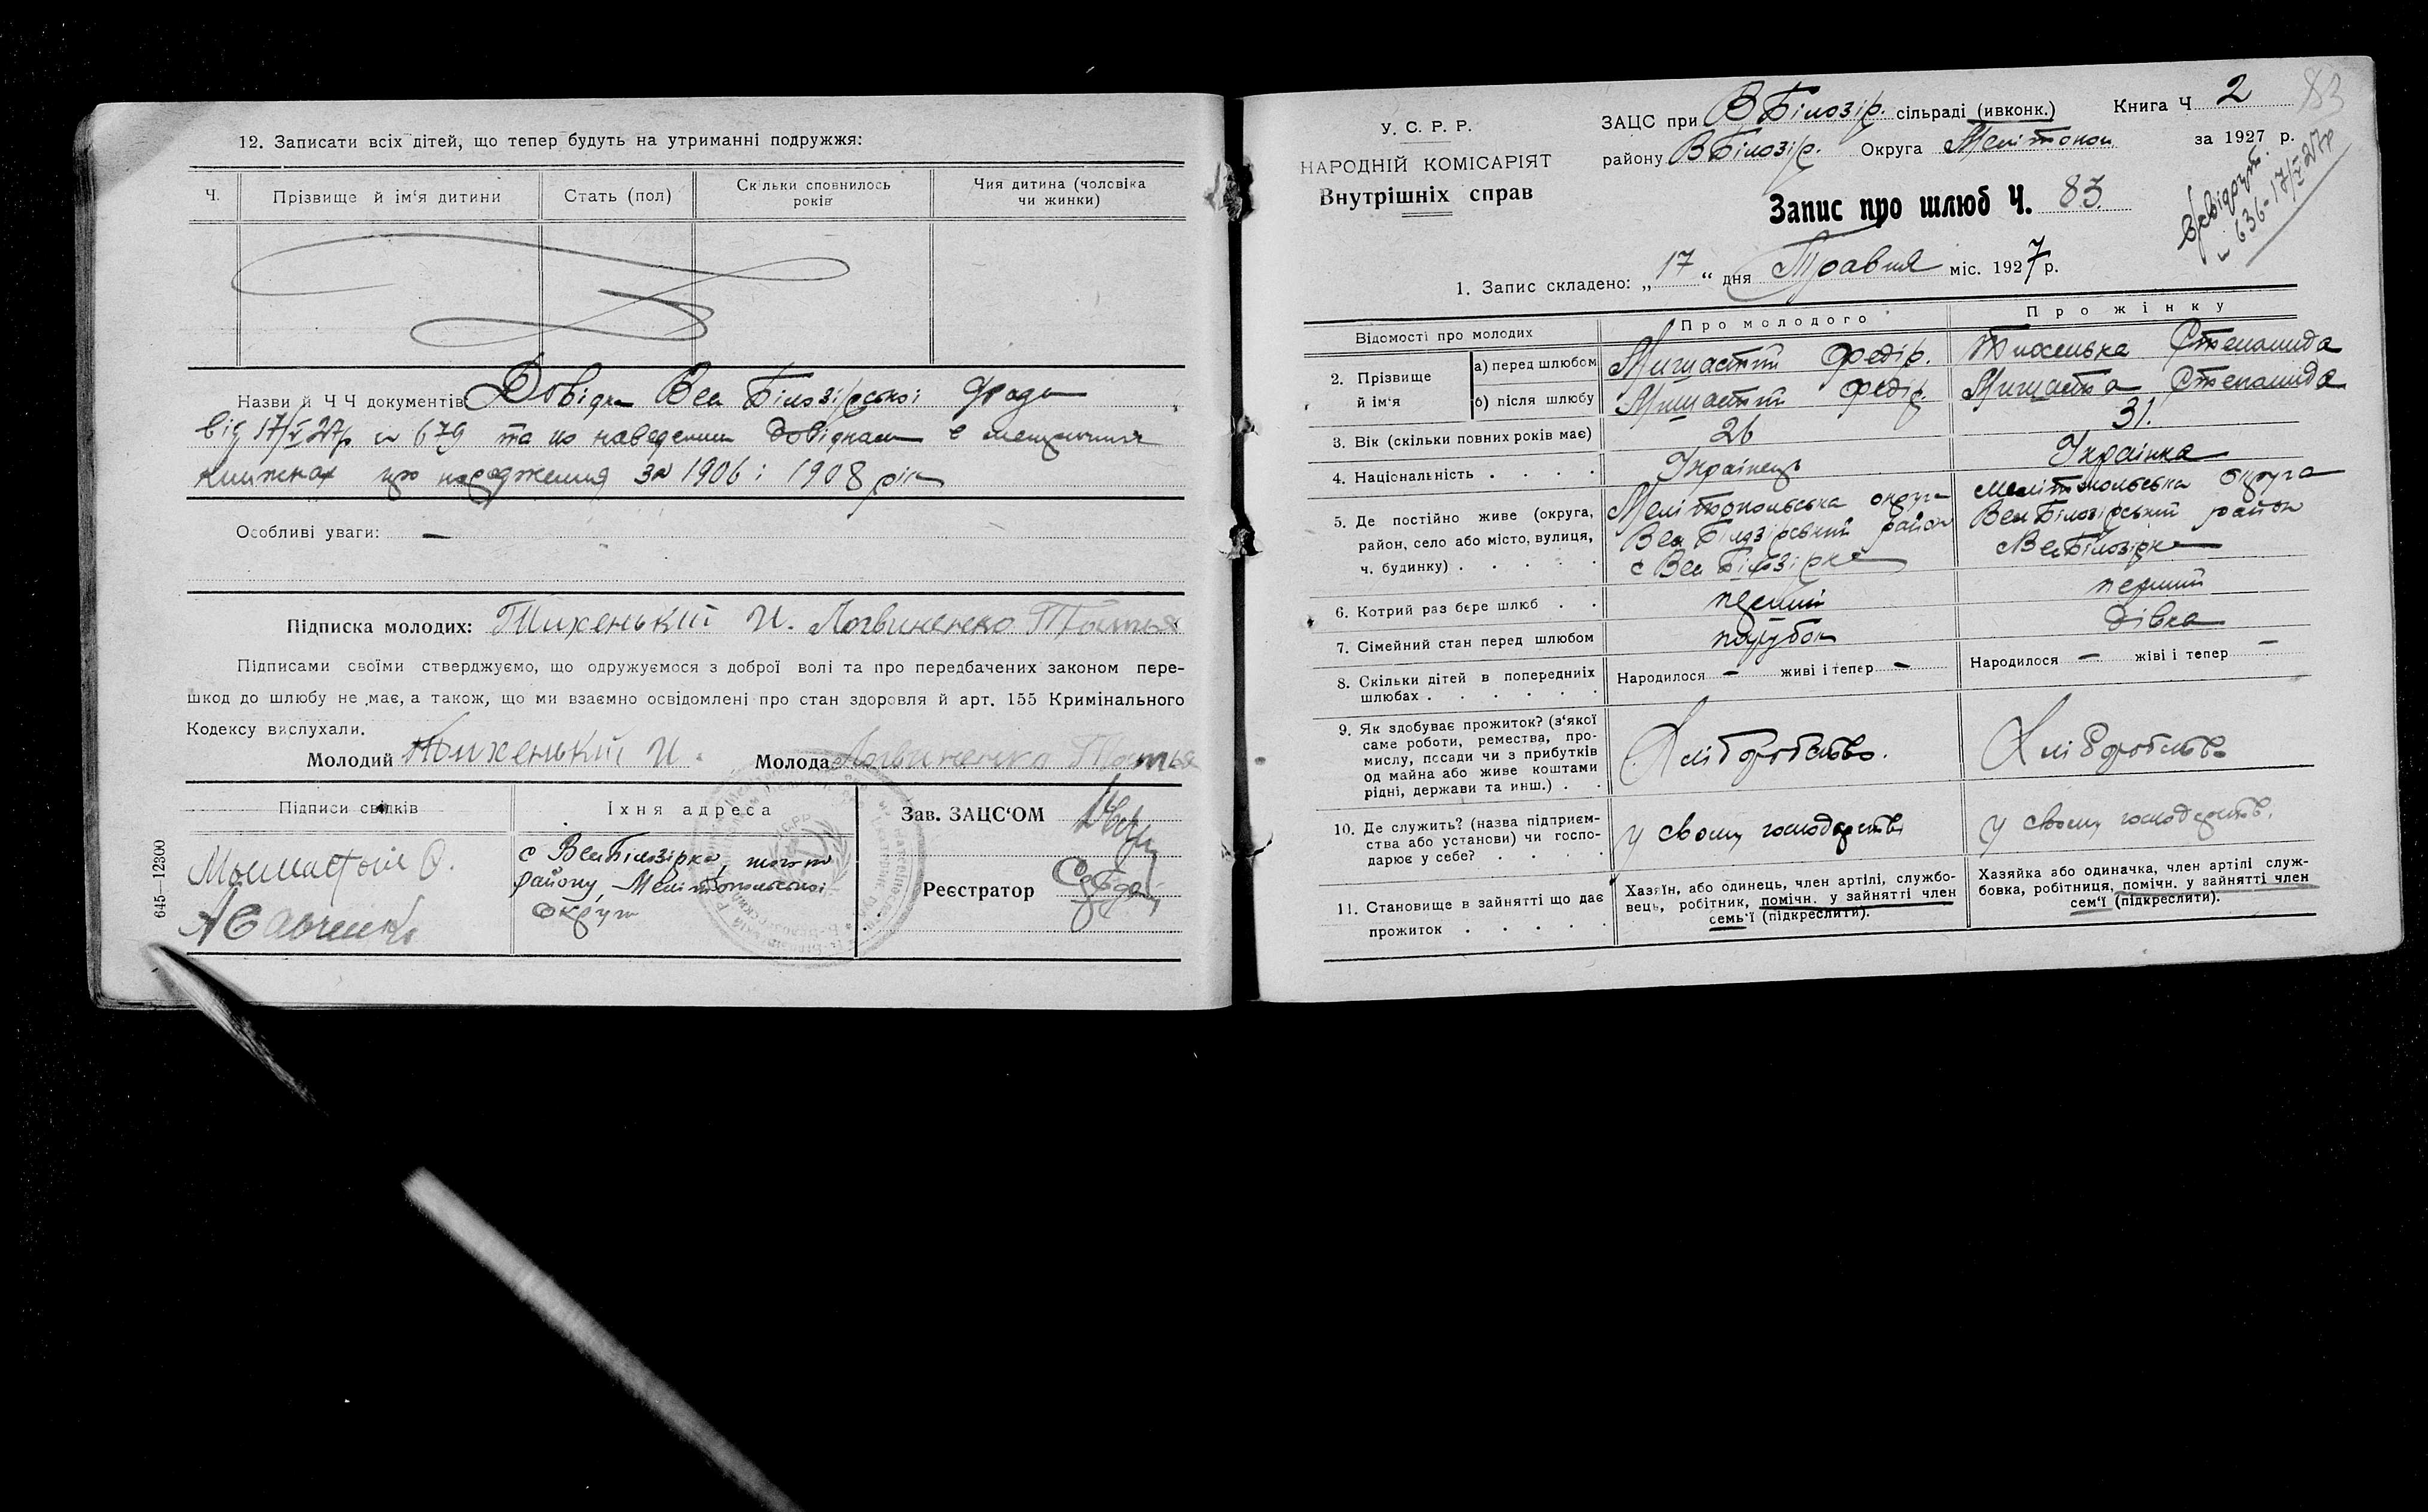 12. Записати всіх дітей, що тепер будуть на утриманні подружжя:
Ч. Прізвище й ім'я дитини Стать (пол) Скільки сповнилось років Чия дитина (чоловіка чи жинки)
Назви й Ч Ч документів Довідка Вел Білозірської
від 17/V 27р № 679 та по наведеним довідкам в
книжках про народження за 1906 і 1908 рік
Особливі уваги: —
Підписка молодих: Тихенький И. Логвиненко Татья
Підписами своїми стверджуємо, що одружуємося з доброї волі та про передбачених законом пере-
шкод до шлюбу не має, а також, що ми взаємно освідомлені про стан здоровля й арт. 155 Кримінального
Кодексу вислухали.
Молодий Тихенький И. Молода Логвиненко Татья
Підписи свідків Їхня адреса Зав. ЗАЦС'ОМ
с Вел Білозірка, того ж
району, Мелітопольської
округи
А Савченко
Реєстратор
645—12300
У. С. Р. Р.
НАРОДНІЙ КОМІСАРІЯТ
Внутрішніх справ
ЗАЦС при В Білозір. сільраді (ивконк.) Книга Ч 2 83
району В Білозір. Округа Мелітопол за 1927 р.
Запис про шлюб Ч. 83
№ 636-17/V 27р
1. Запис складено: „17“ дня Травня міс. 1927 р.
Відомості про молодих Про молодого Про жінку
2. Прізвище й ім'я
а) перед шлюбом Мишастий Федір. Тихенька Степанида
б) після шлюбу Мишастий Федір. Мишаста Степанида
3. Вік (скільки повних років має) 26 31.
4. Національність . . . . Українець Українка
5. Де постійно живе (округа, Мелітопольська округа Мелітопольська округа
район, село або місто, вулиця, Вел Білозірський район Вел Білозірський район
ч. будинку) . . . . . с Вел Білозірка с Вел Білозірка
6. Котрий раз бере шлюб . . перший перший
7. Сімейний стан перед шлюбом парубок дівка
8. Скільки дітей в попередніх шлюбах . . . . . . Народилося — живі і тепер — Народилося — живі і тепер —
9. Як здобуває прожиток? (з'якої
саме роботи, ремества, про-
мислу, посади чи з прибутків
од майна або живе коштами
рідні, держави та инш.) . .
Хліборобство. Хліборобство
10. Де служить? (назва підприєм-
ства або установи) чи госпо-
дарює у себе? . . . .
у своєму господарстві у своєму господарстві.
11. Становище в зайнятті що дає
прожиток . . . . .
Хазяїн, або одинець, член артілі, службо-
вець, робітник, помічн. у зайнятті член
семь'ї (підкреслити).
Хазяйка або одиначка, член артілі служ-
бовка, робітниця, помічн. у зайнятті член
сем'ї (підкреслити).